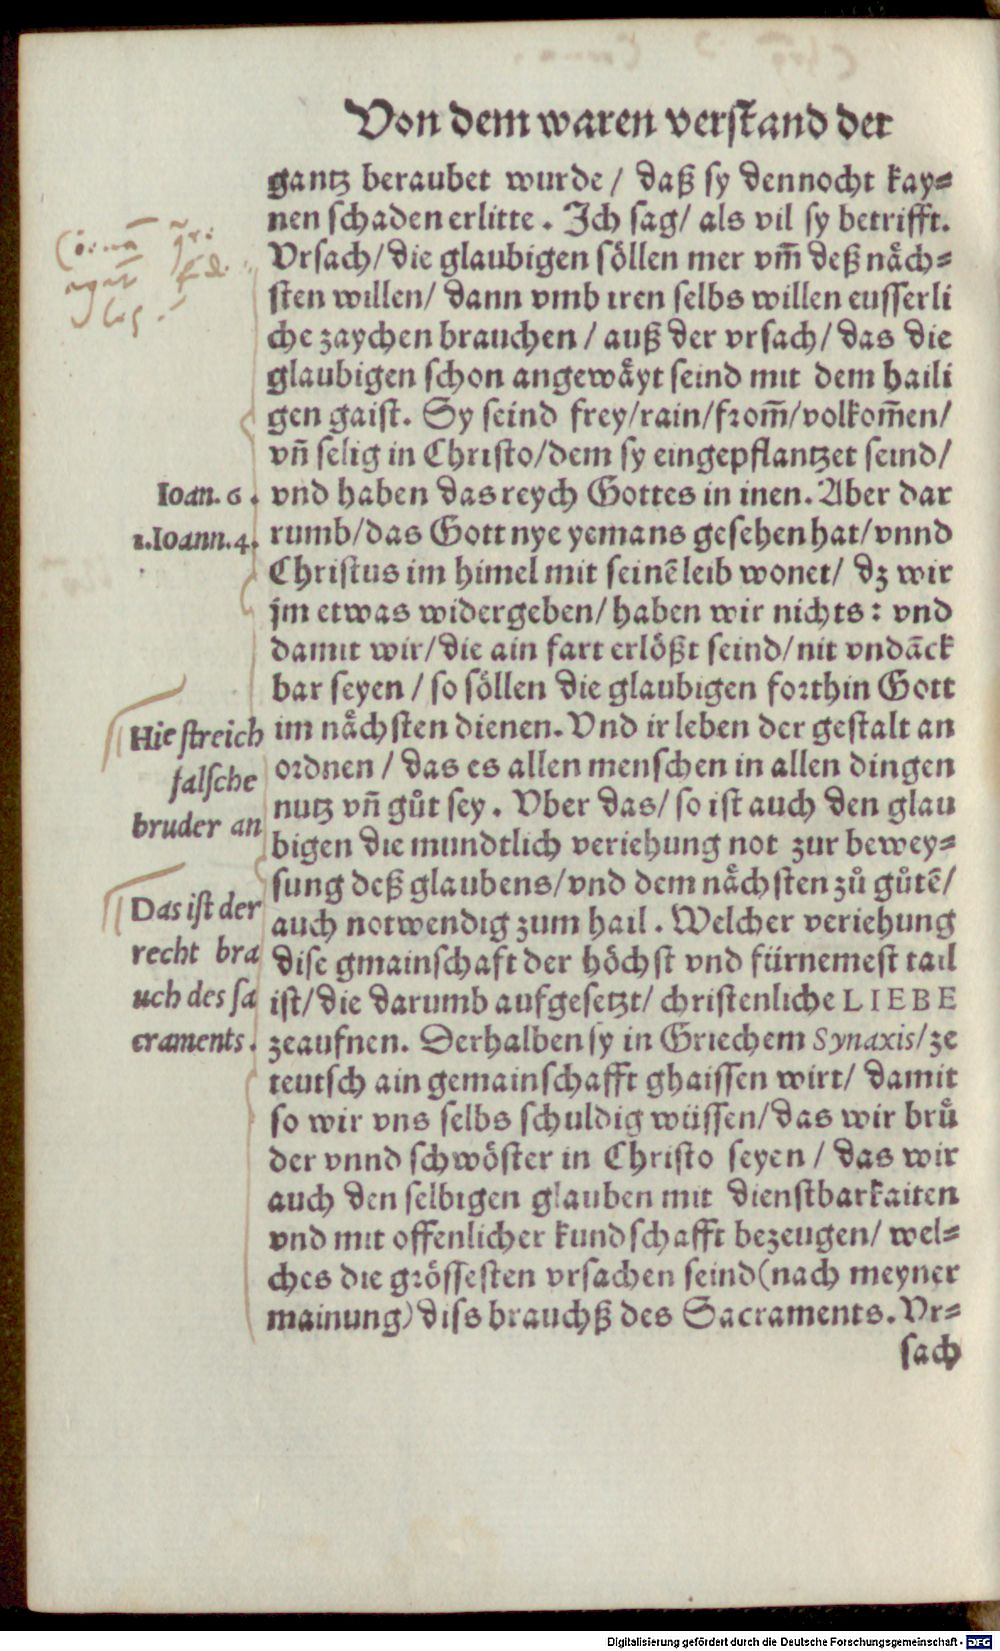 Von dem waren verstand der
gantz beraubet wurde / daß sy dennocht kay⸗
nen schaden erlitte . Ich sag/ als vil sy betrifft.
Vrsach/ die glaubigen söllen mer vm̃ deß nåch⸗
sten willen/ dann vmb iren selbs willen eusserli
che zaychen brauchen / auß der vrsach/ das die
glaubigen schon angewåyt seind mit dem haili
gen gaist. Sy seind frey/rain/from̃/volkom̃en/
vñ selig in Christo/dem sy eingepflantzet seind/
Ioan. 6 .
vnd haben das reych Gottes in inen. Aber dar
1.Ioann.4.
rumb/das Gott nye yemans gesehen hat/vnnd
Christus im himel mit seinē leib wonet/ dz wir
jm etwas widergeben/ haben wir nichts: vnd
damit wir/die ain fart erlößt seind/nit vndāck
bar seyen / so söllen die glaubigen forthin Gott
Hie streich
falsche
bruder an
im nåchsten dienen. Vnd ir leben der gestalt an
ordnen / das es allen menschen in allen dingen
nutz vñ gůt sey . Vber das/ so ist auch den glau
bigen die mundtlich veriehung not zur bewey⸗
sung deß glaubens/vnd dem nåchsten zů gůtē/
Das ist der
recht bra
uch des sa
craments .
auch notwendig zum hail . Welcher veriehung
dise gmainschaft der höchst vnd fürnemest tail
ist/ die darumb aufgesetzt/ christenliche LIEBE
zeaufnen. Derhalben sy in Griechem Synaxis/ze
teutsch ain gemainschafft ghaissen wirt/ damit
so wir vns selbs schuldig wüssen/das wir brů
der vnnd schwöster in Christo seyen / das wir
auch den selbigen glauben mit dienstbarkaiten
vnd mit offenlicher kundschafft bezeugen/ wel⸗
ches die grössesten vrsachen seind(nach meyner
mainung) diss brauchß des Sacraments. Vr⸗
sach
Digitalisierung gefördert durch die Deutsche Forschungsgemeinschaft - DFG